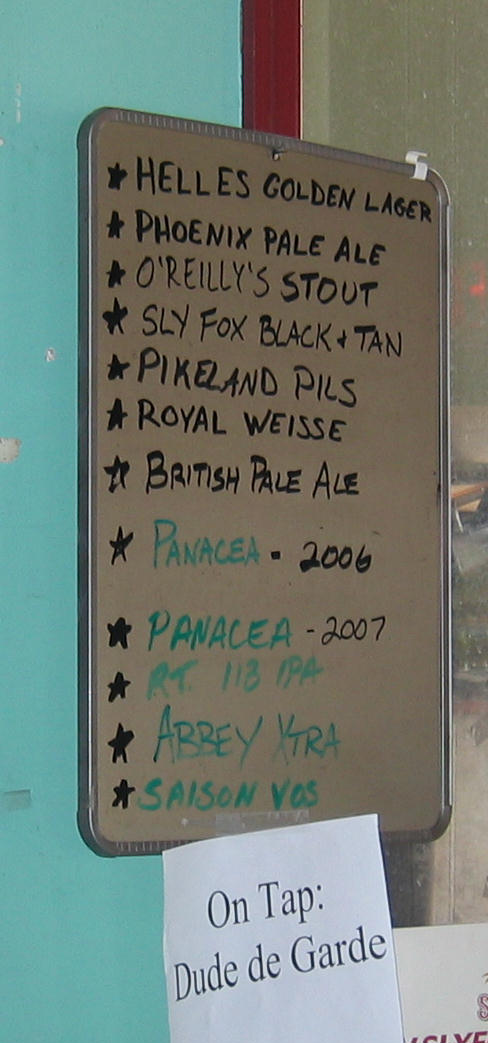 ★ HELLES GOLDEN LAGER
★ PHOENIX PALE ALE
★ O'REILLY'S STOUT
★ SLY FOX BLACK + TAN
★ PIKELAND PILS
★ ROYAL WEISSE
★ BRITISH PALE ALE
★ PANACEA - 2006
★ PANACEA - 2007
★ RT. 113 IPA
★ ABBEY XTRA
★ SAISON VOS
On Tap:
Dude de Garde